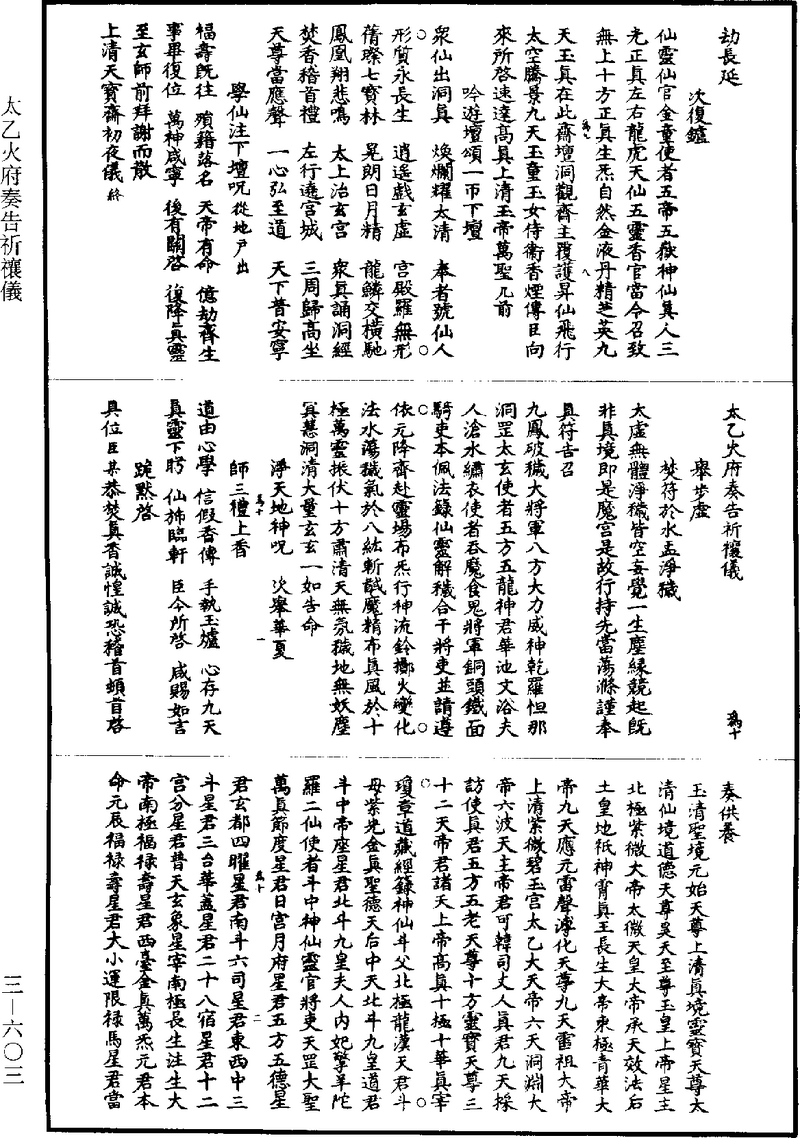 劫長延
次復鑪
仙靈仙官金童使者五帝五嶽神仙真人三
光正真左右龍虎天仙五靈香官當今召致
無上十方正真生炁自然金液丹精芝英九
天玉真在此齋壇洞觀齋主覆護昇仙飛行
太空騰景九天玉童玉女侍衛香煙傳臣向
來所啓速達高真上清玉帝萬聖几前
吟遊壇頌一帀下壇
衆仙出洞真 煥爛耀太清 奉者號仙人
形質永長生 逍遥戲玄虚 宫殿羅無形
蒨璨七寶林 晃朗日月精 龍鱗交橫馳
鳳凰翔悲鳴 太上治玄宫 衆真誦洞經
焚香稽首禮 左行遶宫城 三周歸高坐
天尊當應聲 一心弘至道 天下普安寧
學仙注下壇呪從地户出
福壽既往 殞籍落名 天帝有命 億劫齊生
事畢復位 萬神咸寧 後有關啓 復降真靈
至玄師前拜謝而散
上清天寶齋初夜儀終
太乙火府奏告祈禳儀
舉步虚
焚符於水盂淨穢
太虚無體淨穢皆空妄覺一生塵緣競起既
非真境即是魔宫是故行持先當蕩滌謹奉
真符告召
九鳳破穢大將軍八方大力威神乾羅怛那
洞罡太玄使者五方五龍神君華池丈浴夫
人滄水繡衣使者吞魔食鬼將軍銅頭鐵面
騎吏本佩法籙仙靈解穢合干將吏並請遵
依元降齋赴靈場布炁行神流鈴擲火變化
法水蕩穢氣於八紘斬馘魔精布真風於十
極萬靈振伏十方肅清天無氛穢地無妖塵
冥慧洞清大量玄玄一如告命
淨天地神呪 次舉華夏
師三禮上香
道由心學 信假香傳 手執玉爐 心存九天
真靈下盻 仙斾臨軒 臣今所啓 咸賜如言
跪默啓
具位臣某恭焚真香誠惶誠恐稽首頓首啓
奏供養
玉清聖境元始天尊上清真境靈寶天尊太
清仙境道德天尊昊天至尊玉皇上帝星主
北極紫微大帝太微天皇大帝承天效法后
土皇地祇神霄真王長生大帝東極青華大
帝九天應元雷聲溥化天尊九天雷祖大帝
上清紫微碧玉宫太乙大天帝六天洞淵大
帝六波天主帝君可韓司丈人真君九天採
訪使真君五方五老天尊十方靈寶天尊三
十二天帝君諸天上帝高真十極十華真宰
瓊章道藏經籙神仙斗父北極龍漢天君斗
母紫光金真聖德天后中天北斗九皇道君
斗中帝座星君北斗九皇夫人内妃擎羊陀
羅二仙使者斗中神仙靈官將吏天罡大聖
萬真節度星君日宫月府星君五方五德星
君玄都四曜星君南斗六司星君東西中三
斗星君三台華蓋星君二十八宿星君十二
宫分星君普天玄象星宰南極長生注生大
帝南極福禄壽星君西臺金真萬炁元君本
命元辰福禄壽星君大小運限禄馬星君當
太乙火府奏告祈禳儀
三—六〇三